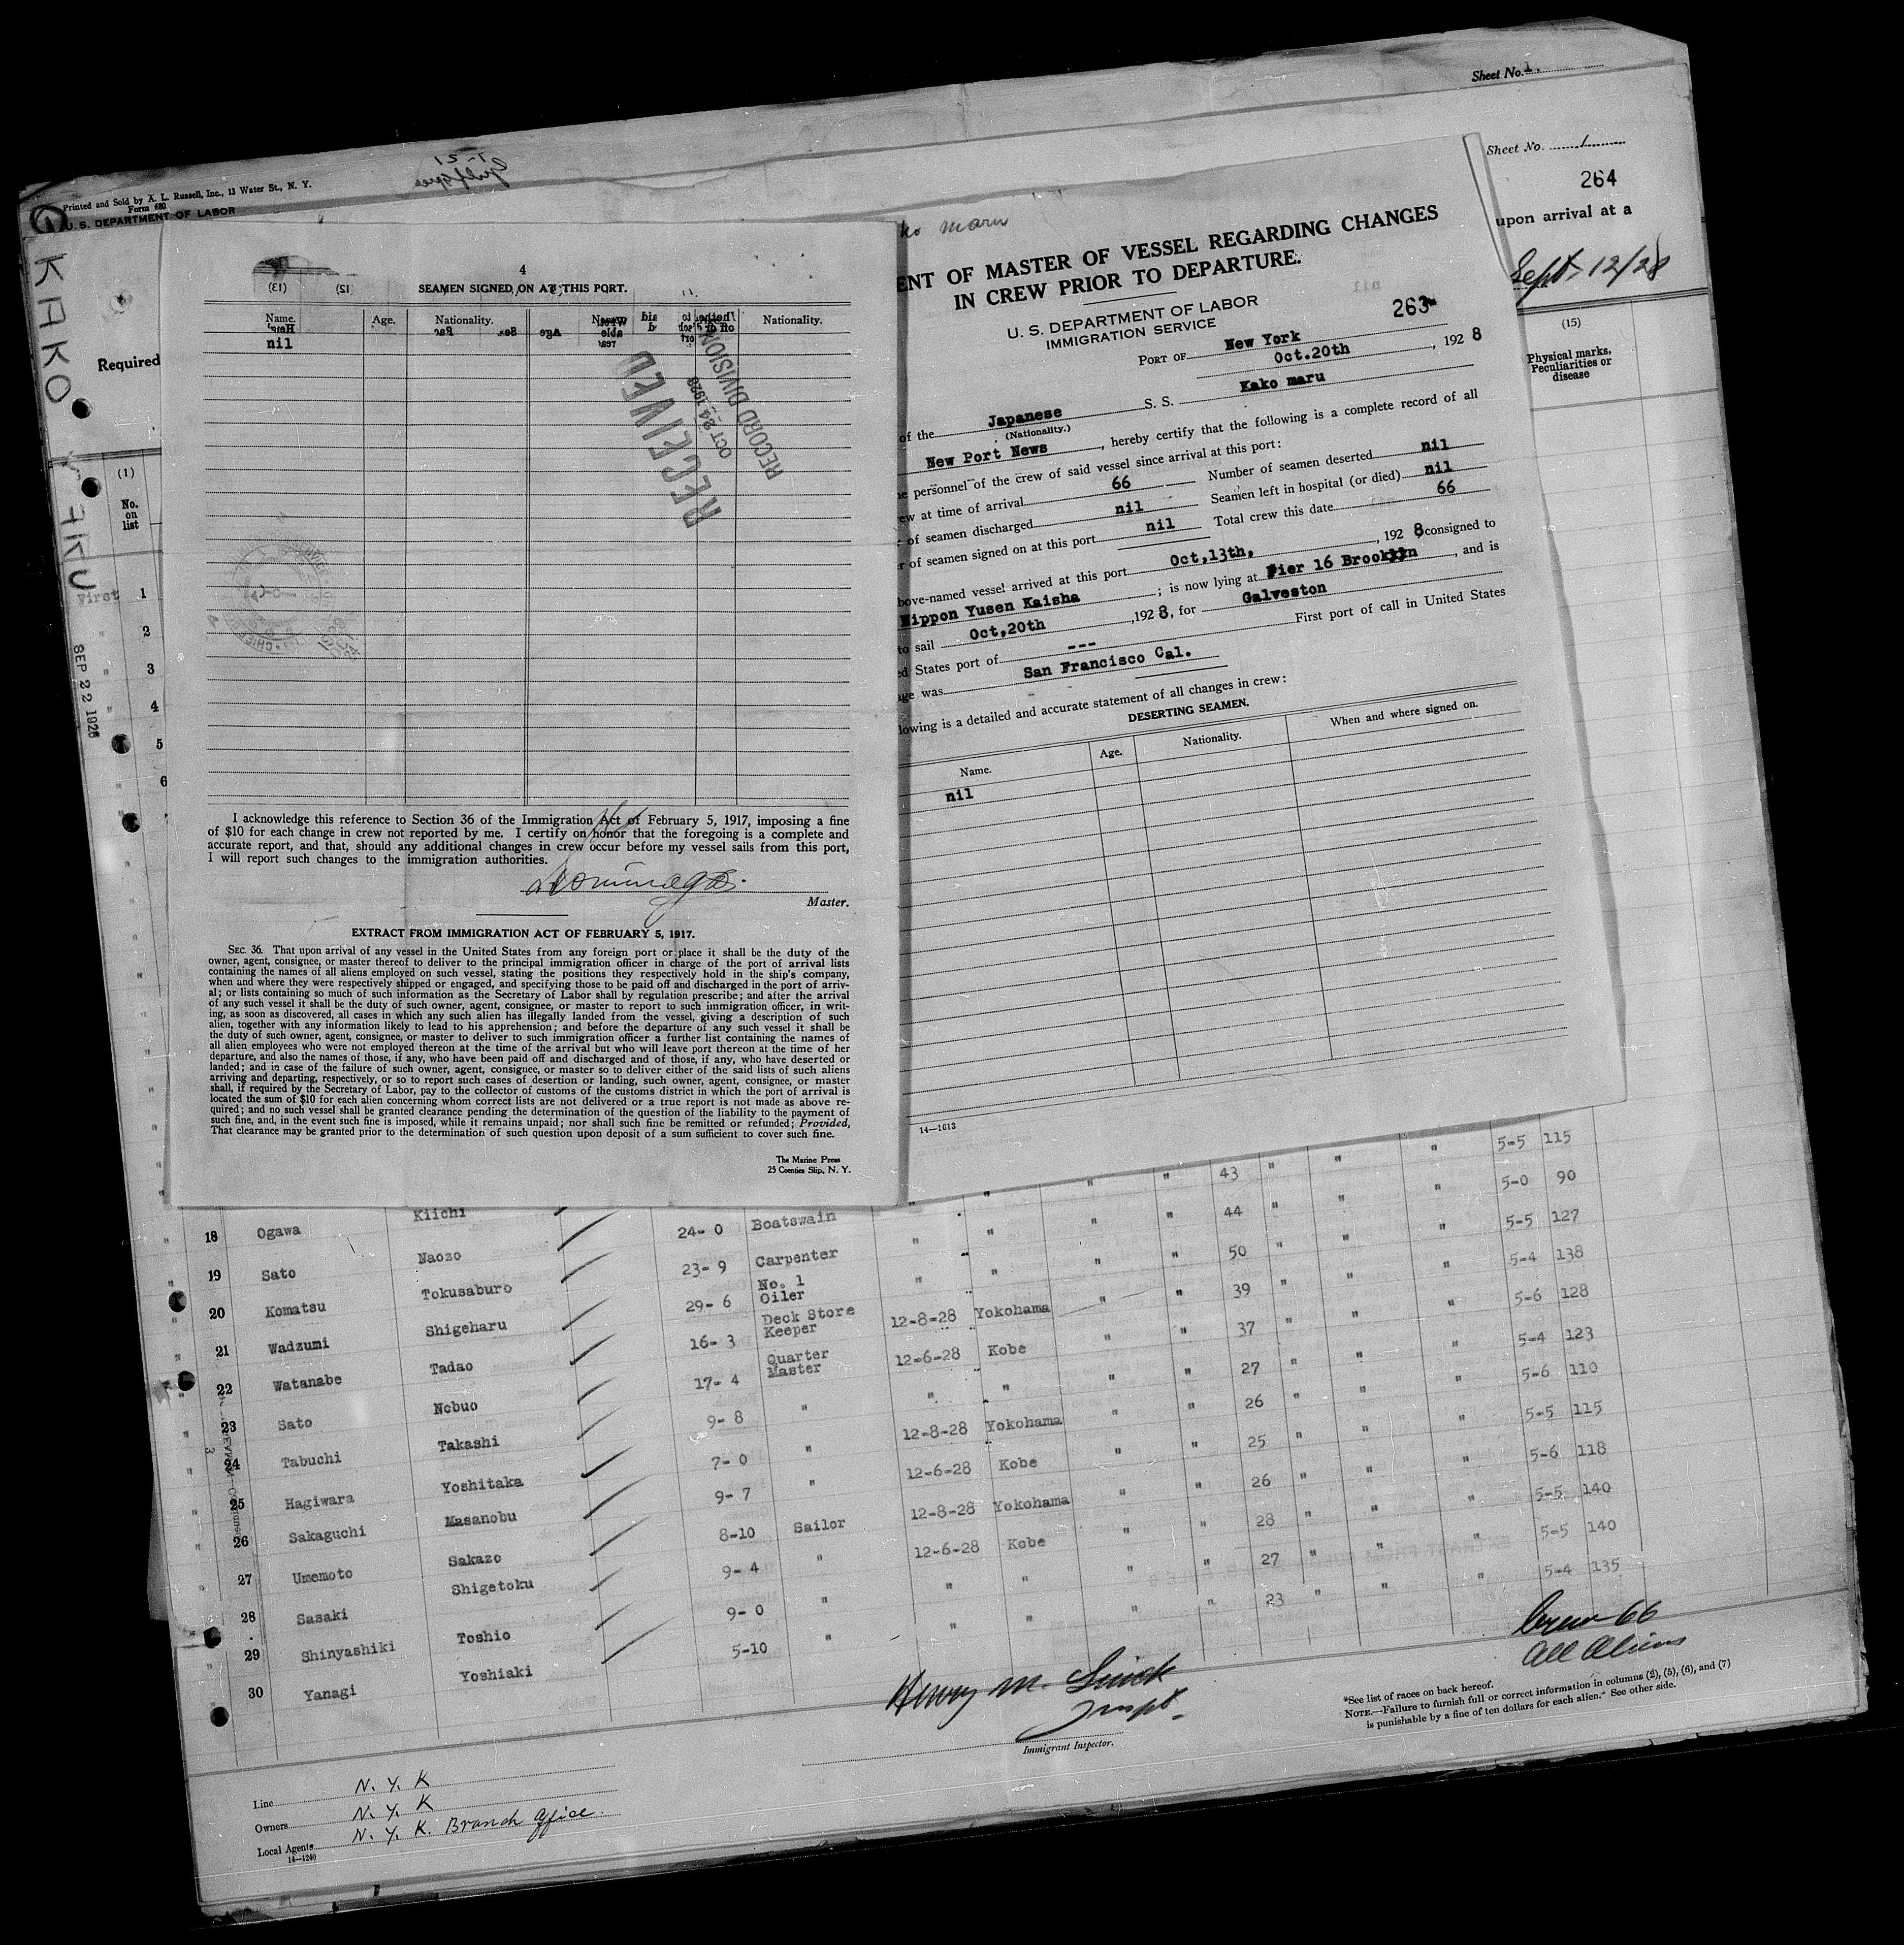 Sheet No. 1.
Sheet No. 1
264
upon arrival at a
Sept. 12/28
(15)
Physical marks,
Peculiarities or
disease
Printed and Sold by X. L. Russell, Inc., 13 Water St., N. Y.
Form 680
U. S. DEPARTMENT OF LABOR
KAKO
Required
(1)
No.
on
list
First 1
2
3
4
5
6
4
SEAMEN SIGNED ON AT THIS PORT.
Name. Age. Nationality. Nationality.
nil
RECEIVED
OCT 24 1928
RECORD DIVISION
I acknowledge this reference to Section 36 of the Immigration Act of February 5, 1917, imposing a fine
of $10 for each change in crew not reported by me. I certify on honor that the foregoing is a complete and
accurate report, and that, should any additional changes in crew occur before my vessel sails from this port,
I will report such changes to the immigration authorities.
Master.
EXTRACT FROM IMMIGRATION ACT OF FEBRUARY 5, 1917.
SEC. 36. That upon arrival of any vessel in the United States from any foreign port or place it shall be the duty of the
owner, agent, consignee, or master thereof to deliver to the principal immigration officer in charge of the port of arrival lists
containing the names of all aliens employed on such vessel, stating the positions they respectively hold in the ship's company,
when and where they were respectively shipped or engaged, and specifying those to be paid off and discharged in the port of arriv-
al; or lists containing so much of such information as the Secretary of Labor shall by regulation prescribe; and after the arrival
of any such vessel it shall be the duty of such owner, agent, consignee, or master to report to such immigration officer, in writ-
ing, as soon as discovered, all cases in which any such alien has illegally landed from the vessel, giving a description of such
alien, together with any information likely to lead to his apprehension; and before the departure of any such vessel it shall be
the duty of such owner, agent, consignee, or master to deliver to such immigration officer a further list containing the names of
all alien employees who were not employed thereon at the time of the arrival but who will leave port thereon at the time of her
departure, and also the names of those, if any, who have been paid off and discharged and of those, if any, who have deserted or
landed; and in case of the failure of such owner, agent, consignee, or master so to deliver either of the said lists of such aliens
arriving and departing, respectively, or so to report such cases of desertion or landing, such owner, agent, consignee, or master
shall, if required by the Secretary of Labor, pay to the collector of customs of the customs district in which the port of arrival is
located the sum of $10 for each alien concerning whom correct lists are not delivered or a true report is not made as above re-
quired; and no such vessel shall be granted clearance pending the determination of the question of the liability to the payment of
such fine, and, in the event such fine is imposed, while it remains unpaid; nor shall such fine be remitted or refunded; Provided,
That clearance may be granted prior to the determination of such question upon deposit of a sum sufficient to cover such fine.
The Marine Press
25 Coenties Slip, N. Y.
maru
ENT OF MASTER OF VESSEL REGARDING CHANGES
IN CREW PRIOR TO DEPARTURE.
U. S. DEPARTMENT OF LABOR
IMMIGRATION SERVICE
263
PORT OF New York
Oct.20th, 1928
of the Japanese S. S. Kako maru
(Nationality.)
New Port News, hereby certify that the following is a complete record of all
personnel of the crew of said vessel since arrival at this port:
ew at time of arrival 66 Number of seamen deserted nil
of seamen discharged nil Seamen left in hospital (or died) nil
r of seamen signed on at this port nil Total crew this date 66
bove-named vessel arrived at this port Oct,13th, , 1928, consigned to
Nippon Yusen Kaisha ; is now lying at Pier 16 Brooklyn, and is
to sail Oct,20th, 1928, for Galveston
ed States port of --- First port of call in United States
age was San Francisco Cal.
lowing is a detailed and accurate statement of all changes in crew:
DESERTING SEAMEN.
Name. Age. Nationality. When and where signed on.
nil
14—1613
5-5 115
" " " 43 " " " 5-0 90
18 Ogawa Kiichi 24- 0 Boatswain " " " " 44 " " " 5-5 127
19 Sato Naozo 23- 9 Carpenter " " " " 50 " " " 5-4 138
20 Komatsu Tokusaburo 29- 6 No. 1 Oiler " " " " 39 " " " 5-6 128
21 Wadzumi Shigeharu 16- 3 Deck Store Keeper 12-8-28 Yokohama " " 37 " " " 5-4 123
22 Watanabe Tadao 17- 4 Quarter Master 12-6-28 Kobe " " 27 " " " 5-6 110
23 Sato Nobuo 9- 8 " " " " " 26 " " " 5-5 115
24 Tabuchi Takashi 7- 0 " 12-8-28 Yokohama " " 25 " " " 5-6 118
25 Hagiwara Yoshitaka 9- 7 " 12-6-28 Kobe " " 26 " " " 5-5 140
26 Sakaguchi Masanobu 8-10 Sailor 12-8-28 Yokohama " " 28 " " " 5-5 140
27 Umemoto Sakazo 9- 4 " 12-6-28 Kobe " " 27 " " " 5-4 135
28 Sasaki Shigetoku 9- 0 " " " " " 23 " " "
29 Shinyashiki Toshio 5-10 " " "
30 Yanagi Yoshiaki
Crew 66
All Aliens
Henry M.
Inspt.
Immigrant Inspector.
*See list of races on back hereof.
NOTE.—Failure to furnish full or correct information in columns (2), (5), (6), and (7)
is punishable by a fine of ten dollars for each alien. See other side.
Line N. Y. K
Owners N. Y. K
Local Agents N. Y. K. Branch Office.
14—1240